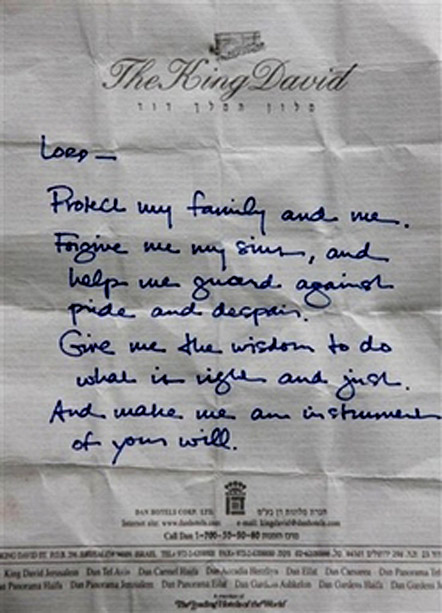 The King David
מלון המלך דוד
Lord —
Protect my family and me.
Forgive me my sins, and
help me guard against
pride and despair.
Give me the wisdom to do
what is right and just.
And make me an instrument
of your will.
DAN HOTELS CORP. LTD. חברת מלונות דן בע"מ
Internet site: www.danhotels.com e-mail: kingdavid@danhotels.com
Call Dan
KING DAVID ST. P.O.B. JERUSALEM ISRAEL
King David Jerusalem Dan Tel Aviv Dan Carmel Haifa Dan Accadia Herzliya Dan Eilat Dan Caesarea Dan
Dan Panorama Haifa Dan Panorama Jerusalem Dan Panorama Eilat Dan Gardens Ashkelon Dan Gardens Haifa Dan Gardens
A member of
"The Leading Hotels of the World"